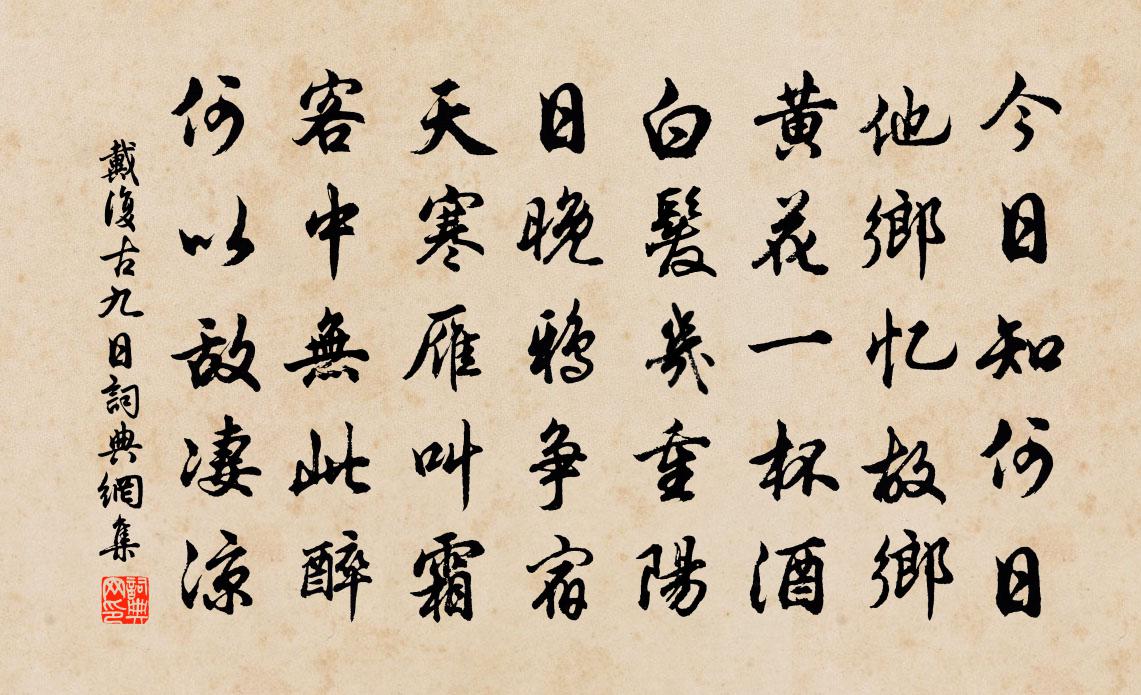 今日知何日
他鄉忆故鄉
黃花一杯酒
白髮幾重陽
日晚鴉爭宿
天寒雁叫霜
客中無此醉
何以敵凄涼
戴復古九日詞典網集
詞典网印